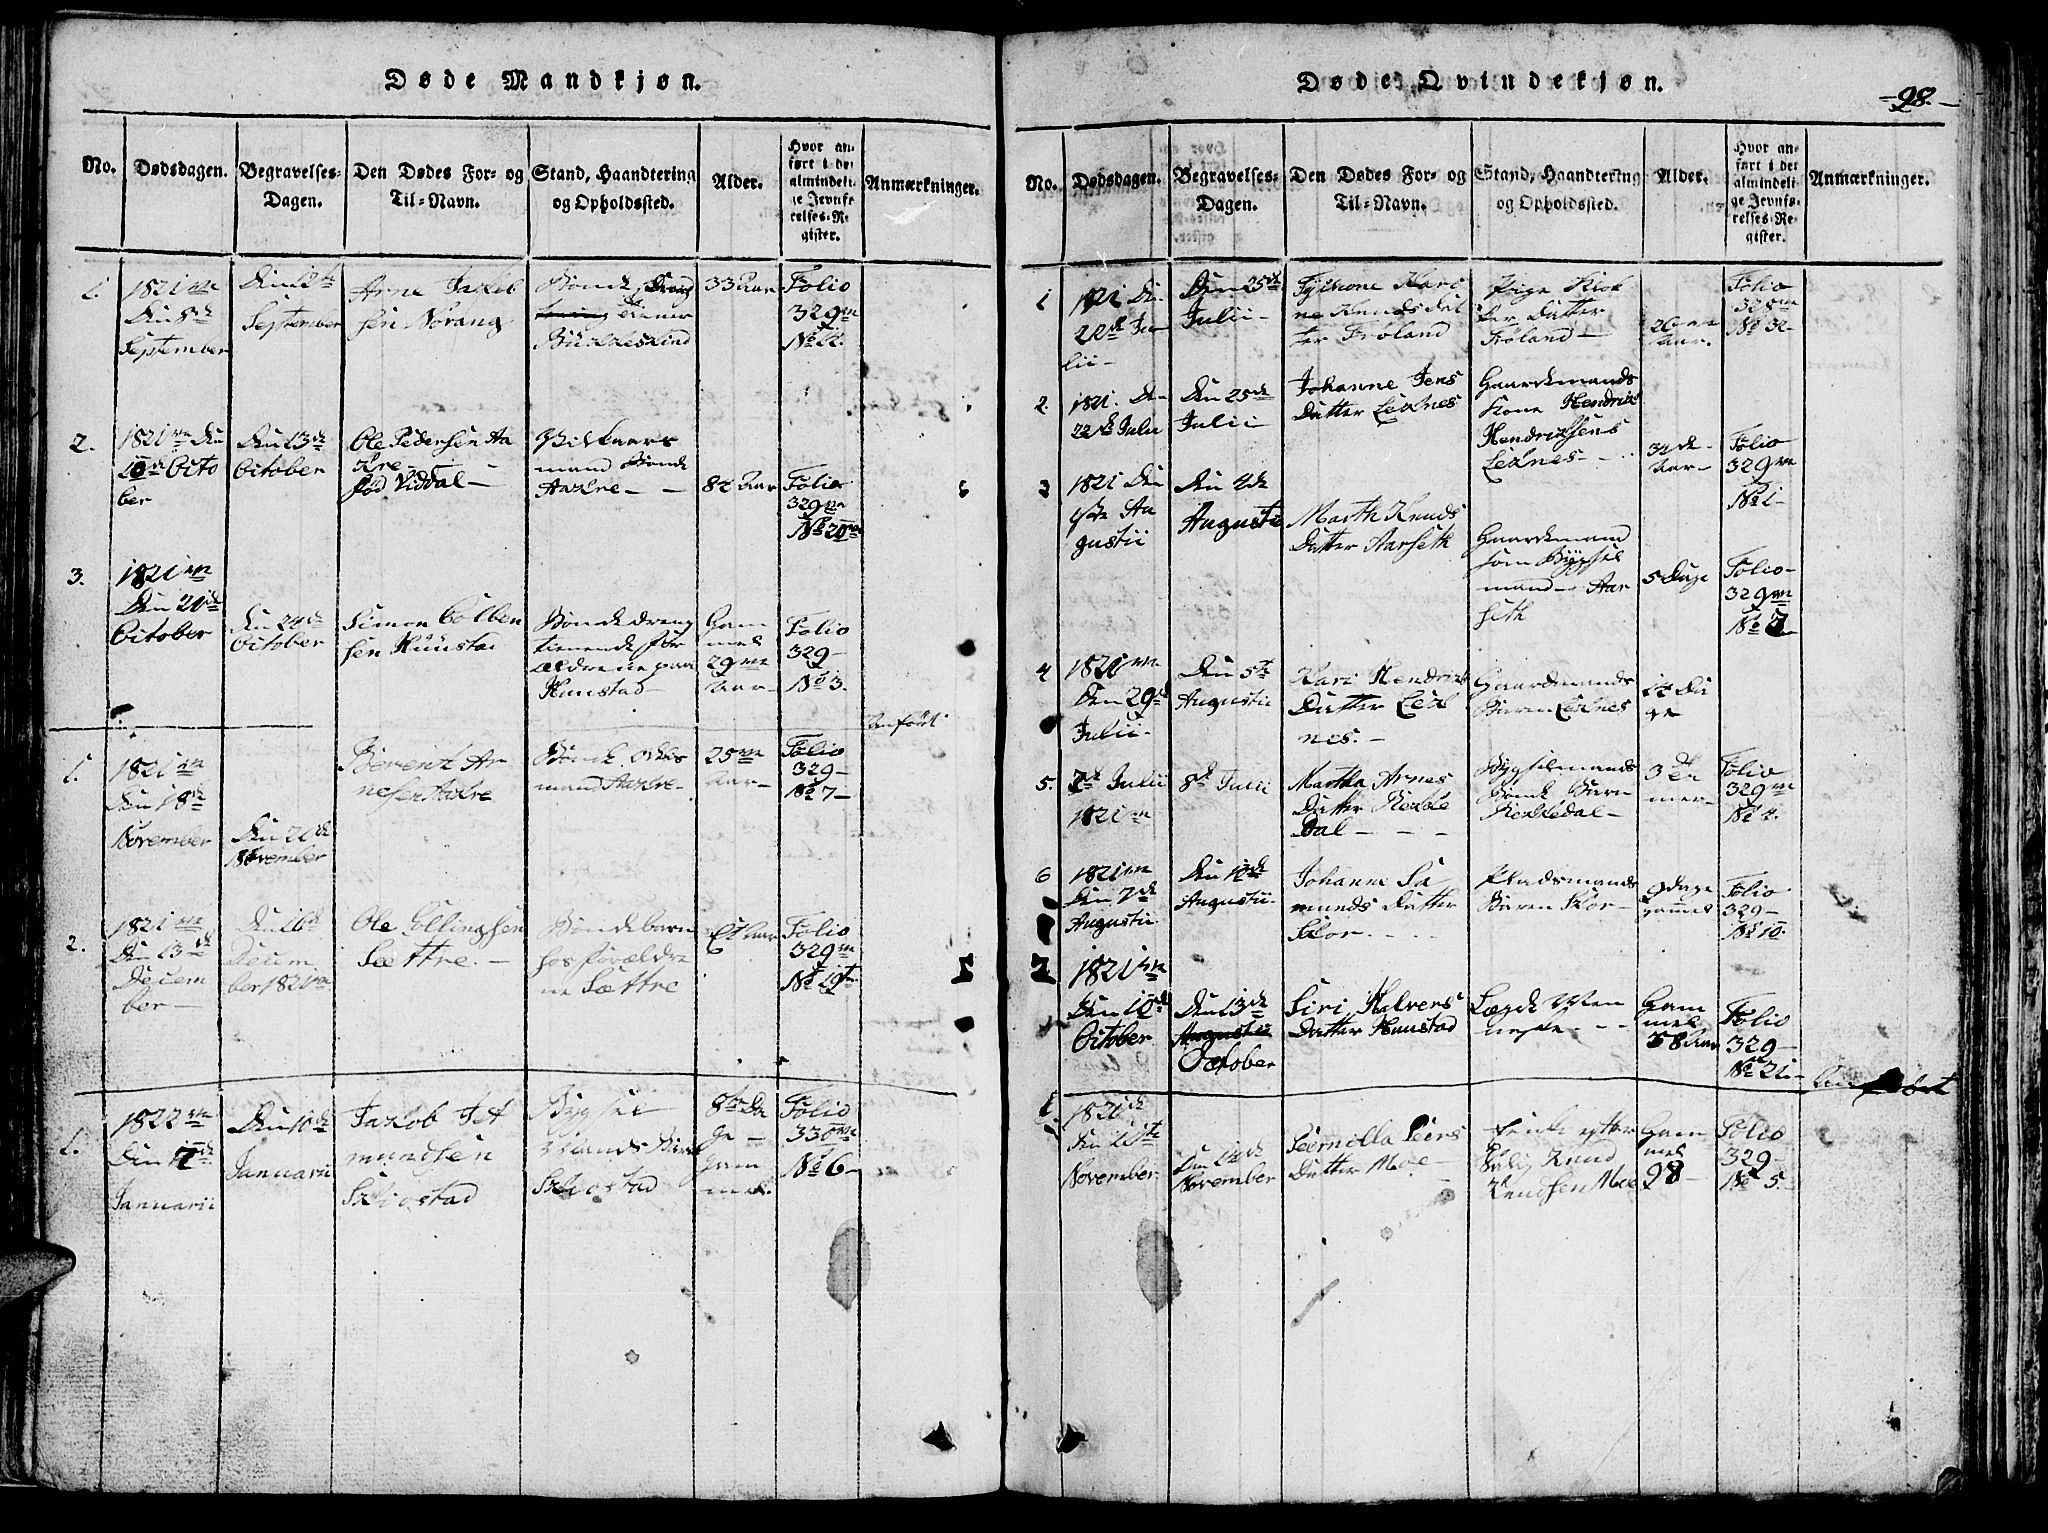 Døde Mandkjøn.
No.
Dødsdagen.
Begravelses-
Dagen.
Den Dødes For- og
Til-Navn.
Stand, Haandtering
og Opholdssted.
Alder.
Hvor an-
ført i det
almindeli-
ge Jevnfø-
relses-Re-
gister.
Anmærkninger.
1.
1821
Den 8de
September
Den 12te
September
Arne Jakob
sen Norang
Bonde
33 Aar
Folio
329
2.
1821 Den
10de Octo
ber
Den 13de
October
Ole Pedersen Aa
kre
fød Viddal
mand Bonde
Aakre
Folio
329
No 20
3.
1821
Den 21de
October
Den 24de
October
Simon Colben
sen Hunstad
Bondedreng
tienende for
ældrene paa
Hunstad
Gam
mel
29
Aar
Folio
329
No 3.
Anført
1.
1821
Den 18de
November
November
Berent Ar
nesen Aakre
mand Aakre
25
Aar
Folio
329
No 7
2.
1821
Den 13de
Decem
ber
Den 16de
Decem
ber 1821
Ole Ellingsen
Sættre
Bondebarn
hos forældre
ne Sættre
Et Aar
Folio
329
No 19
1.
1822
Januarii
Den 10de
Januarii
Jakob Jet
mundsen
Skiostad
Bygsel
Mands Barn
Skiostad
8te Da
ge
Gam
mel
Folio
330
No 6
Døde Qvindekjøn.
98.
No.
Dødsdagen.
Begravelses-
Dagen.
Den Dødes For- og
Til-Navn.
Stand, Haandtering
og Opholdssted.
Alder.
Hvor an-
ført i det
almindeli-
ge Jevnfø-
relses-Re-
gister.
Anmærkninger.
1
1821 Den
22de Ju
lii
Den 25de
Julii
ne Knudsdat
ter Frøland
Pige
Datter
26
Aar.
Folio
328
2.
1821. Den
22de Julii
Den 25de
Julii
Johanne Jens
Datter Lexnes
Gaardmands
Kone Hendrik
Hendriksens
Lexnes
Aar
Folio
329
No 1
3
1821 Den
1ste Au
gustii
Den 4de
Augustii
Marth Knuds
Datter Aarseth
Gaardmand
som Bygsel
mand Aar
seth
5 Dage
Folio
329
4
1821
Den 29de
Julii
Den 5te
Augustii
Kari Hendriks
Datter Lex
nes.
Gaardmands
Baren Lexnes
14 Da
ge
5.
7de Julii
1821
8de Julii
Martha Arnes
Datter Kokse
Dal
Bygselmands
Bonde Barn
Folio
329
No 4.
6
1821
Den 7de
Augustii
Den 12de
Augustii
Johanne Sa
munds Datter
Skor
Pladsmands
Baren Skor
9 dage
gammel
Folio
329
No 10.
7
1821
Den 10de
October
Den 13de
Augustii
October
Siri Halvers
Datter Hunstad
Lægde Men
neske
Gam
mel
58 Aar
Folio
329
No 21.
Anført
1.
1821
November
November
Peernilla Peers
Datter Moe
Enke efter
Salig Knud
Knudsen Moe
Gam
mel
98
Folio
329
No 5.